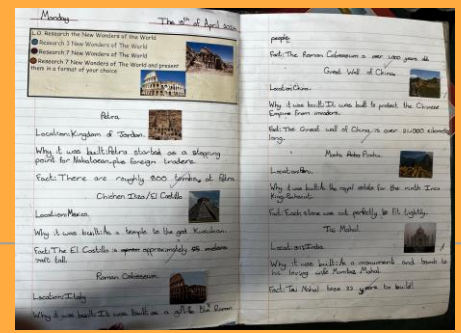 Monday
The 15th of April
L.O. Research the New Wonders of The World
Research 3 New Wonders of The World
Research 7 New Wonders of The World
Research 7 New Wonders of The World and present
them in a format of your choice
Petra
Location: Kingdom of Jordan.
Why it was built: Petra started as a stopping
point for foreign traders.
Fact: There are roughly 800 tombs at Petra
Chichen Itza/El Castillo
Location: Mexico.
Why it was built: As a temple to the god Kukulkan.
Fact: The El Castillo is approximately
tall.
Roman Colosseum
Location: Italy
Why it was built: It was built as a gift to the Roman
people.
Fact: The Roman Colosseum is over years old
Great Wall of China
Location: China.
Why it was built: It was built to protect the Chinese
Empire from invaders.
Fact: The Great wall of China is over 21,000 kilometres
long.
Machu Picchu.
Location: Peru.
Why it was built: As royal estate for the ninth Inca
King
Fact: Each stone was cut perfectly to fit tightly.
Taj Mahal
Location: India.
Why it was built: As a monument and tomb to
his loving wife Mumtaz Mahal.
Fact: Taj Mahal took 22 years to build!